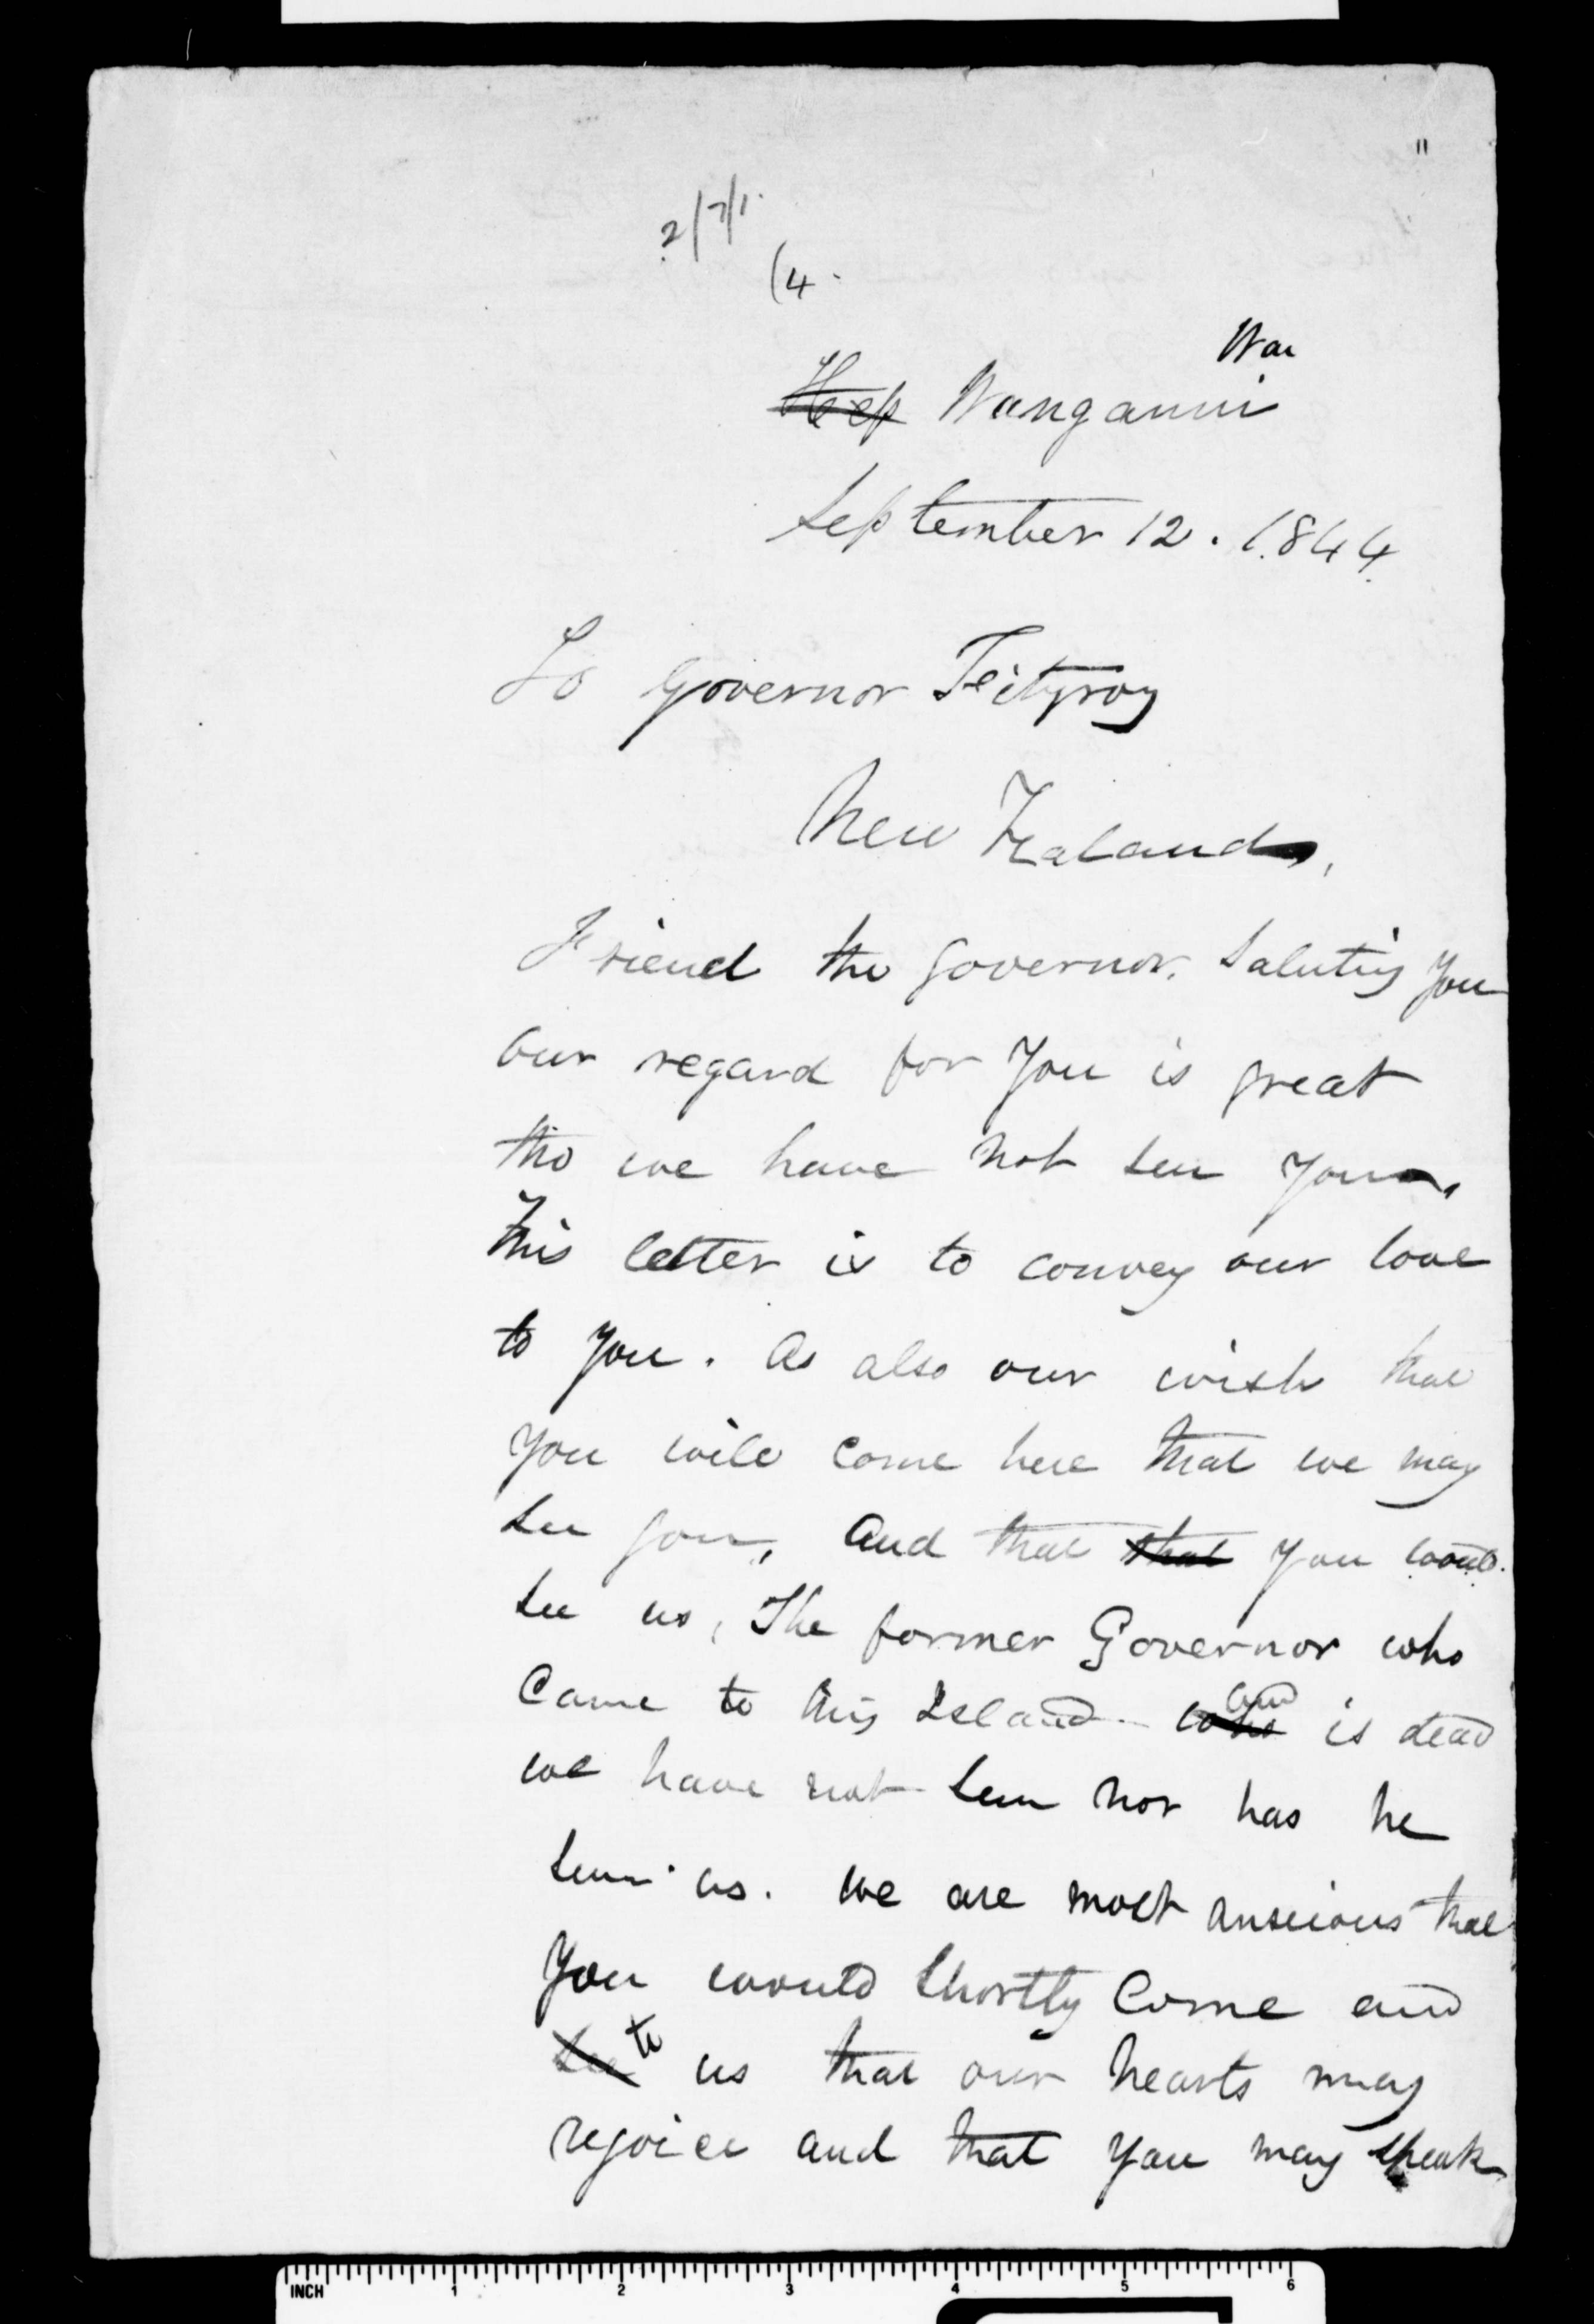 "
2/7/1.
(4.
Wai
Hep Wanganui
September 12. 1844
To Governor Feitzroy
New Zealand,
Friend the Governor. Saluting you
our regard for you is great
tho we have not seen you,
This letter is to convey our love
to you. As also our wish that
you will come here that we may
see you, and that that you would
see us, The former Governor who
came to this Island who and is dead
we have not seen nor has he
seen us. we are most anxious that
you would shortly come and
see to us that our hearts may
rejoice and that you may speak
INCH 1 2 3 4 5 6